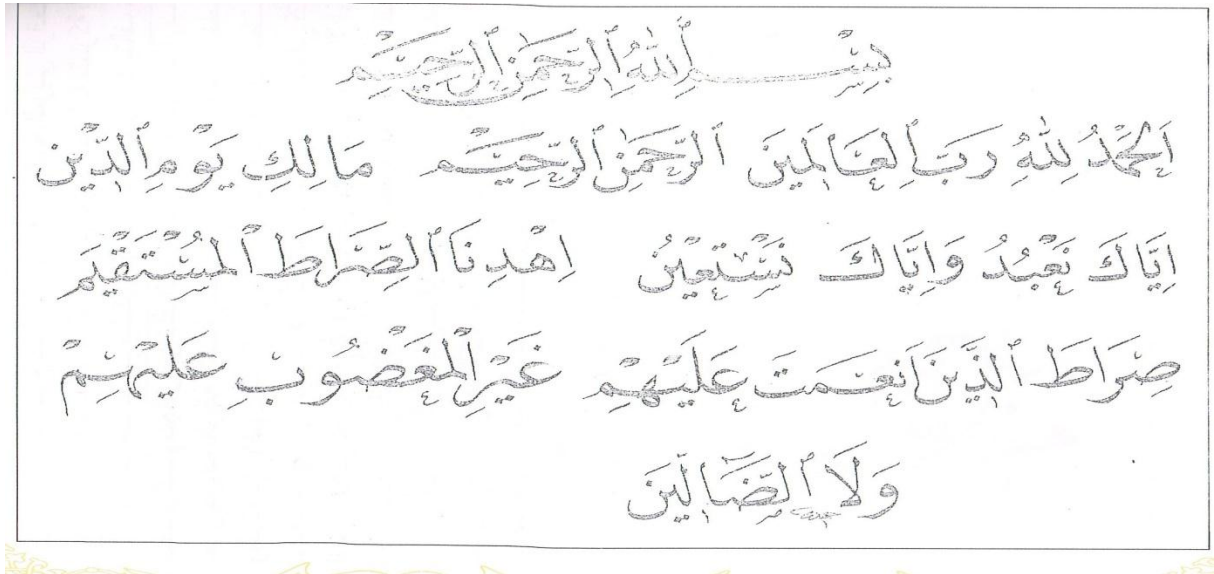 بِسْمِ ٱللهِ ٱلرَّحْمٰنِ ٱلرَّحِيْمِ
اَلْحَمْدُ لِلّٰهِ رَبِّ ٱلْعَالَمِينَ ٱلرَّحْمٰنِ ٱلرَّحِيْمِ مَالِكِ يَوْمِ ٱلدِّيْنِ
اِيَّاكَ نَعْبُدُ وَاِيَّاكَ نَسْتَعِيْنُ اِهْدِنَا ٱلصِّرَاطَ ٱلْمُسْتَقِيْمَ
صِرَاطَ ٱلَّذِينَ اَنْعَمْتَ عَلَيْهِمْ غَيْرِ ٱلْمَغْضُوبِ عَلَيْهِمْ
وَلَا ٱلضَّآلِّينَ